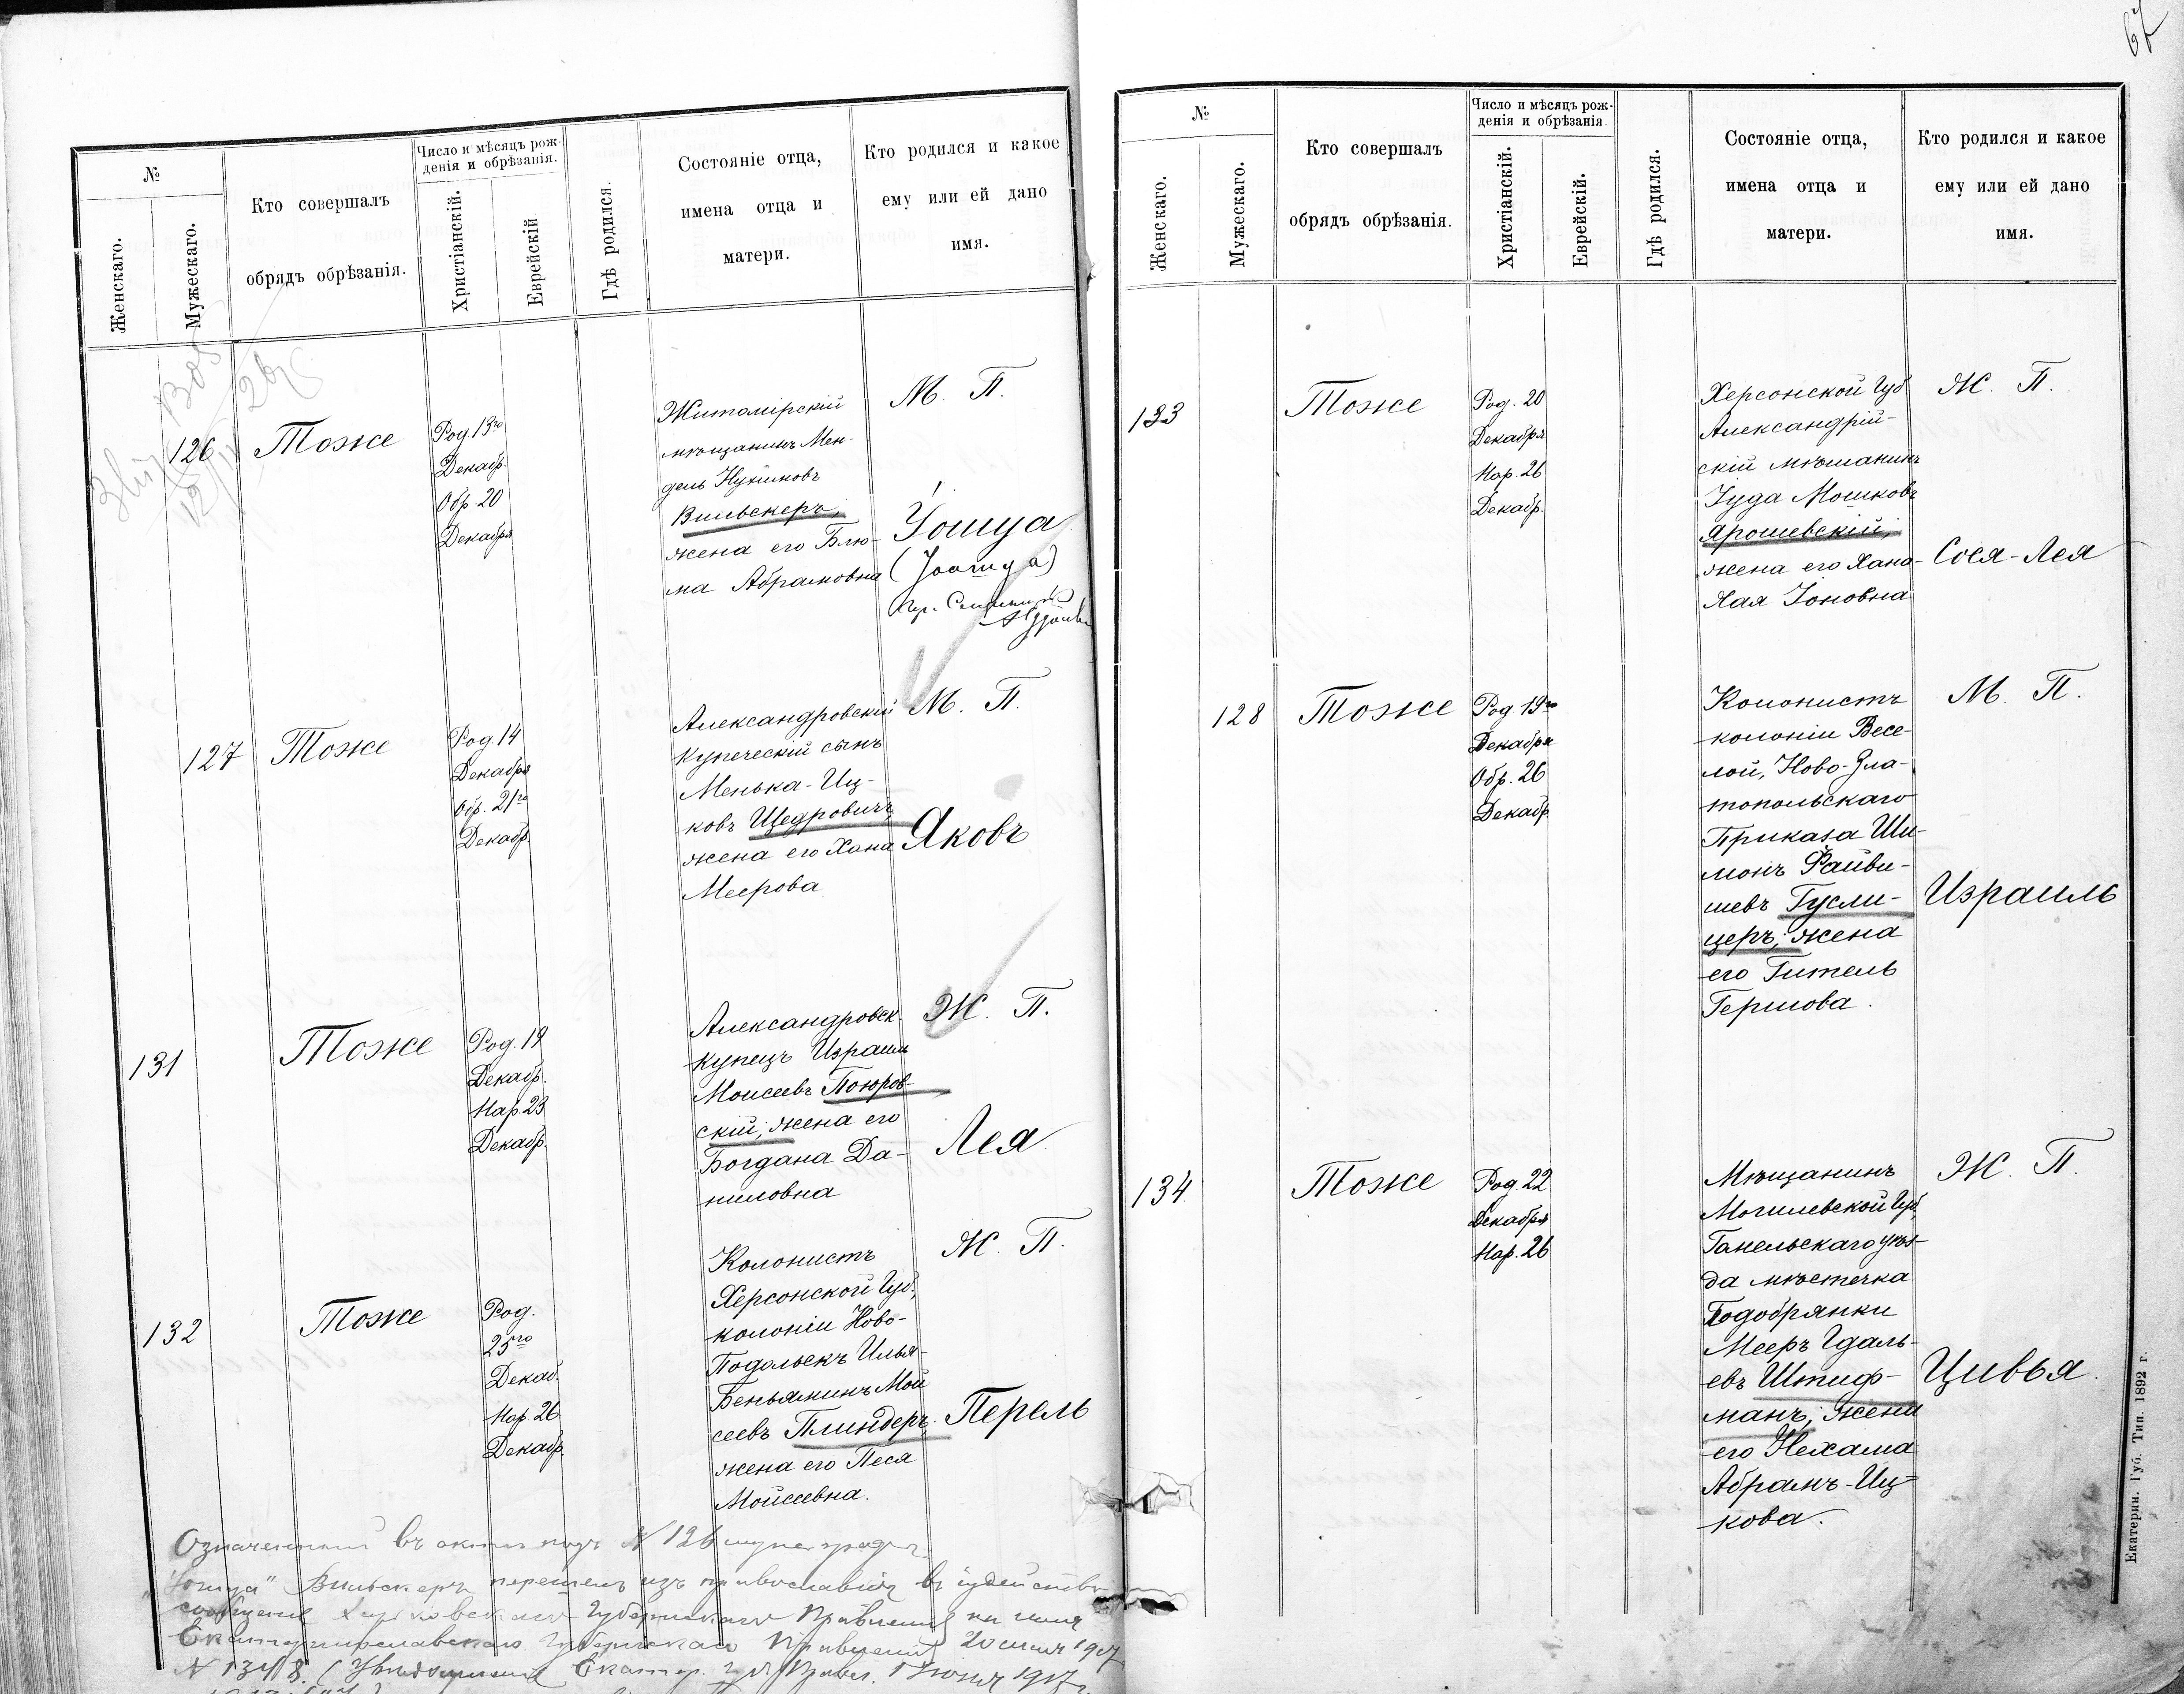 67
№
Женскаго.
Мужескаго.
Кто совершалъ
обрядъ обрѣзанія.
Число и мѣсяцъ рож-
денія и обрѣзанія.
Христіанскій.
Еврейскій
Гдѣ родился.
Состояніе отца,
имена отца и
матери.
Кто родился и какое
ему или ей дано
имя.
126
Тоже
Род. 13го
Декабр.
Обр 20
Декабря
Житомірскій
мѣщанинъ Мен-
дель
Вильскеръ,
жена его Блю-
ма Абрамовна
М. П.
Іошуа
127
Тоже
Род. 14
Декабря
Обр. 21го
Декабр.
Александровскій
купеческій сынъ
Менька-Иц-
ковъ Щедровичъ,
жена его Хана
Меерова
М. П.
Яковъ
131
Тоже
Род. 19
Декабр.
Нар. 23
Декабр.
Александровск.
купецъ Израиль
Моисеевъ Поюров-
скій, жена его
Богдана Да-
ниловна
Ж. П.
Лея
132
Тоже
Род.
25го
Декаб.
Нар. 26
Декабр.
Колонистъ
Херсонской Губ.,
колоніи Ново-
Подольскъ Илья-
Беньяминъ Мой
сеевъ Плиндеръ,
жена его Песя
Мойсеевна.
Ж. П.
Перель
Означенный въ актѣ подъ № 126
Вильскеръ перешелъ изъ православія въ іудейство
Харьковскаго Губернскаго Правленія
Екатеринославскаго Губернскаго Правленія 1907
№
№
Женскаго.
Мужескаго.
Кто совершалъ
обрядъ обрѣзанія.
Число и мѣсяцъ рож-
денія и обрѣзанія.
Христіанскій.
Еврейскій.
Гдѣ родился.
Состояніе отца,
имена отца и
матери.
Кто родился и какое
ему или ей дано
имя.
133
Тоже
Род. 20
Декабря
Нар. 26
Декабр.
Херсонской Губ
Александрій-
скій мѣщанинъ
Іуда Мошковъ
Ярошевскій,
жена его Хана-
Хая Іоновна
Ж. П.
Сося-Лея
128
Тоже
Род. 19го
Декабря
Обр. 26
Декабр.
Колонистъ
колоніи Весе-
лой, Ново-Зла-
топольскаго
Приказа Ши-
монъ Файви-
шевъ Гусли-
церъ, жена
его Гитель
Гершова.
М. П.
Израиль
134.
Тоже
Род. 22
Декабря
Нар. 26
Мѣщанинъ
Могилевской Губ.
Гомельскаго уѣз-
да мѣстечка
Подобрянки
Мееръ Гдаль-
евъ Штиф-
манъ, жена
его Нехама
Абрамъ-Иц-
кова.
Ж. П.
Цивья.
Екатерин. Губ. Тип. 1892 г.